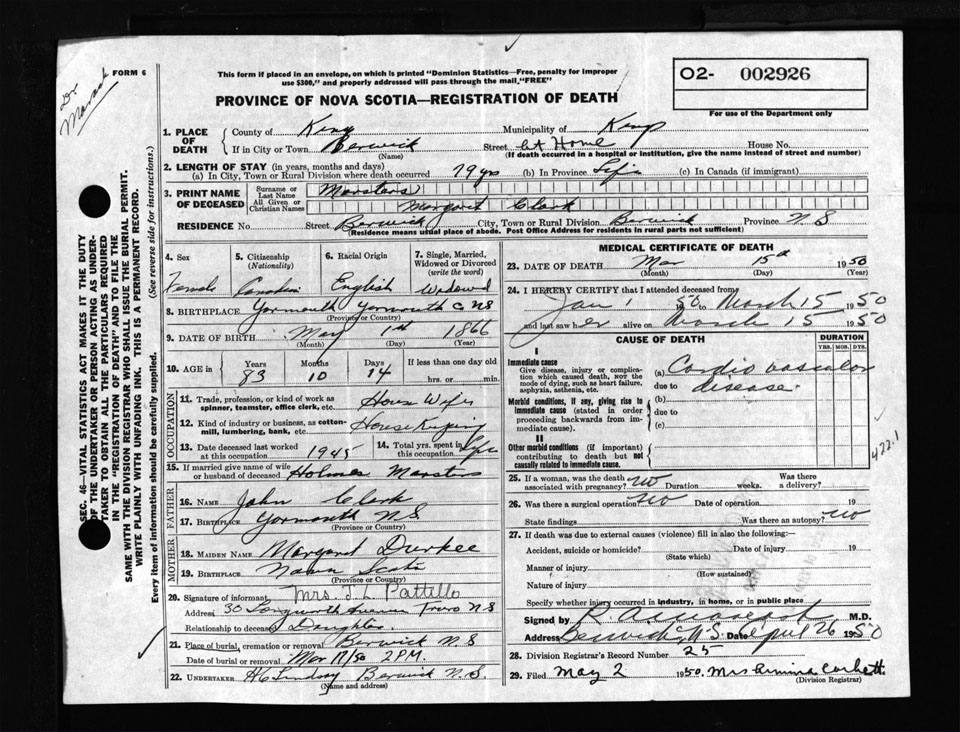 FORM 6
Dr
This form if placed in an envelope, on which is printed "Dominion Statistics—Free, penalty for improper
use $300," and properly addressed will pass through the mail, "FREE"
PROVINCE OF NOVA SCOTIA—REGISTRATION OF DEATH
O2- 002926
For use of the Department only
1. PLACE OF DEATH { County of Kings Municipality of Kings
If in City or Town Berwick Street At Home House No.
(Name) (If death occurred in a hospital or institution, give the name instead of street and number)
2. LENGTH OF STAY (in years, months and days)
(a) In City, Town or Rural Division where death occurred 79 yrs (b) In Province Life (c) In Canada (if immigrant)
3. PRINT NAME OF DECEASED { Surname or Last Name Marsters
All Given or Christian Names Margaret Clark
RESIDENCE No. Street Berwick City, Town or Rural Division Berwick Province N S
(Residence means usual place of abode. Post Office Address for residents in rural parts not sufficient)
4. Sex Female
5. Citizenship (Nationality) Canadian
6. Racial Origin English
7. Single, Married, Widowed or Divorced (write the word) Widowed
8. BIRTHPLACE Yarmouth Yarmouth C NS
(Province or Country)
9. DATE OF BIRTH May 1st 1866
(Month) (Day) (Year)
10. AGE in { Years 83 Months 10 Days 14 If less than one day old
hrs. or min.
OCCUPATION
11. Trade, profession, or kind of work as spinner, teamster, office clerk, etc. House Wife
12. Kind of industry or business, as cotton-mill, lumbering, bank, etc. House Keeping
13. Date deceased last worked at this occupation 1945
14. Total yrs. spent in this occupation Life
15. If married give name of wife or husband of deceased Holmes Marsters
FATHER
16. NAME John Clark
17. BIRTHPLACE Yarmouth N S
(Province or Country)
MOTHER
18. MAIDEN NAME Margaret Durkee
19. BIRTHPLACE Nova Scotia
(Province or Country)
20. Signature of informant Mrs. J. L. Pattillo
Address 30 Longworth Avenue Truro N S
Relationship to deceased Daughter
21. Place of burial, cremation or removal Berwick N. S
Date of burial or removal Mar 17/50 2 P.M.
22. UNDERTAKER Lindsay Berwick N. S.
(Name and address)
MEDICAL CERTIFICATE OF DEATH
23. DATE OF DEATH Mar 15th 1950
(Month) (Day) (Year)
24. I HEREBY CERTIFY that I attended deceased from
Jan 1 50 to March 15 1950
and last saw her alive on March 15 1950
CAUSE OF DEATH
DURATION
YRS. MOS. DYS.
I
Immediate cause
Give disease, injury or complication which caused death, not the mode of dying, such as heart failure, asphyxia, asthenia, etc.
(a) Cardio vascular
due to disease
Morbid conditions, if any, giving rise to immediate cause (stated in order proceeding backwards from immediate cause).
(b)
due to
(c)
II
Other morbid conditions (if important) contributing to death but not causally related to immediate cause.
422.1
25. If a woman, was the death associated with pregnancy? No Duration weeks. Was there a delivery?
26. Was there a surgical operation? No Date of operation 19
State findings Was there an autopsy? No
27. If death was due to external causes (violence) fill in also the following:—
Accident, suicide or homicide? Date of injury 19
(State which)
Manner of injury
(How sustained)
Nature of injury
Specify whether injury occurred in industry, in home, or in public place
Signed by M.D.
Address Berwick, N.S. Date April 26 1950
28. Division Registrar's Record Number 25
29. Filed May 2 1950. Mrs Corbett.
(Division Registrar)
SEC. 46—VITAL STATISTICS ACT MAKES IT THE DUTY
OF THE UNDERTAKER OR PERSON ACTING AS UNDER-
TAKER TO OBTAIN ALL THE PARTICULARS REQUIRED
IN THE "REGISTRATION OF DEATH" AND TO FILE THE
SAME WITH THE DIVISION REGISTRAR WHO SHALL ISSUE THE BURIAL PERMIT.
WRITE PLAINLY WITH UNFADING INK. THIS IS A PERMANENT RECORD.
Every item of information should be carefully supplied. (See reverse side for instructions.)